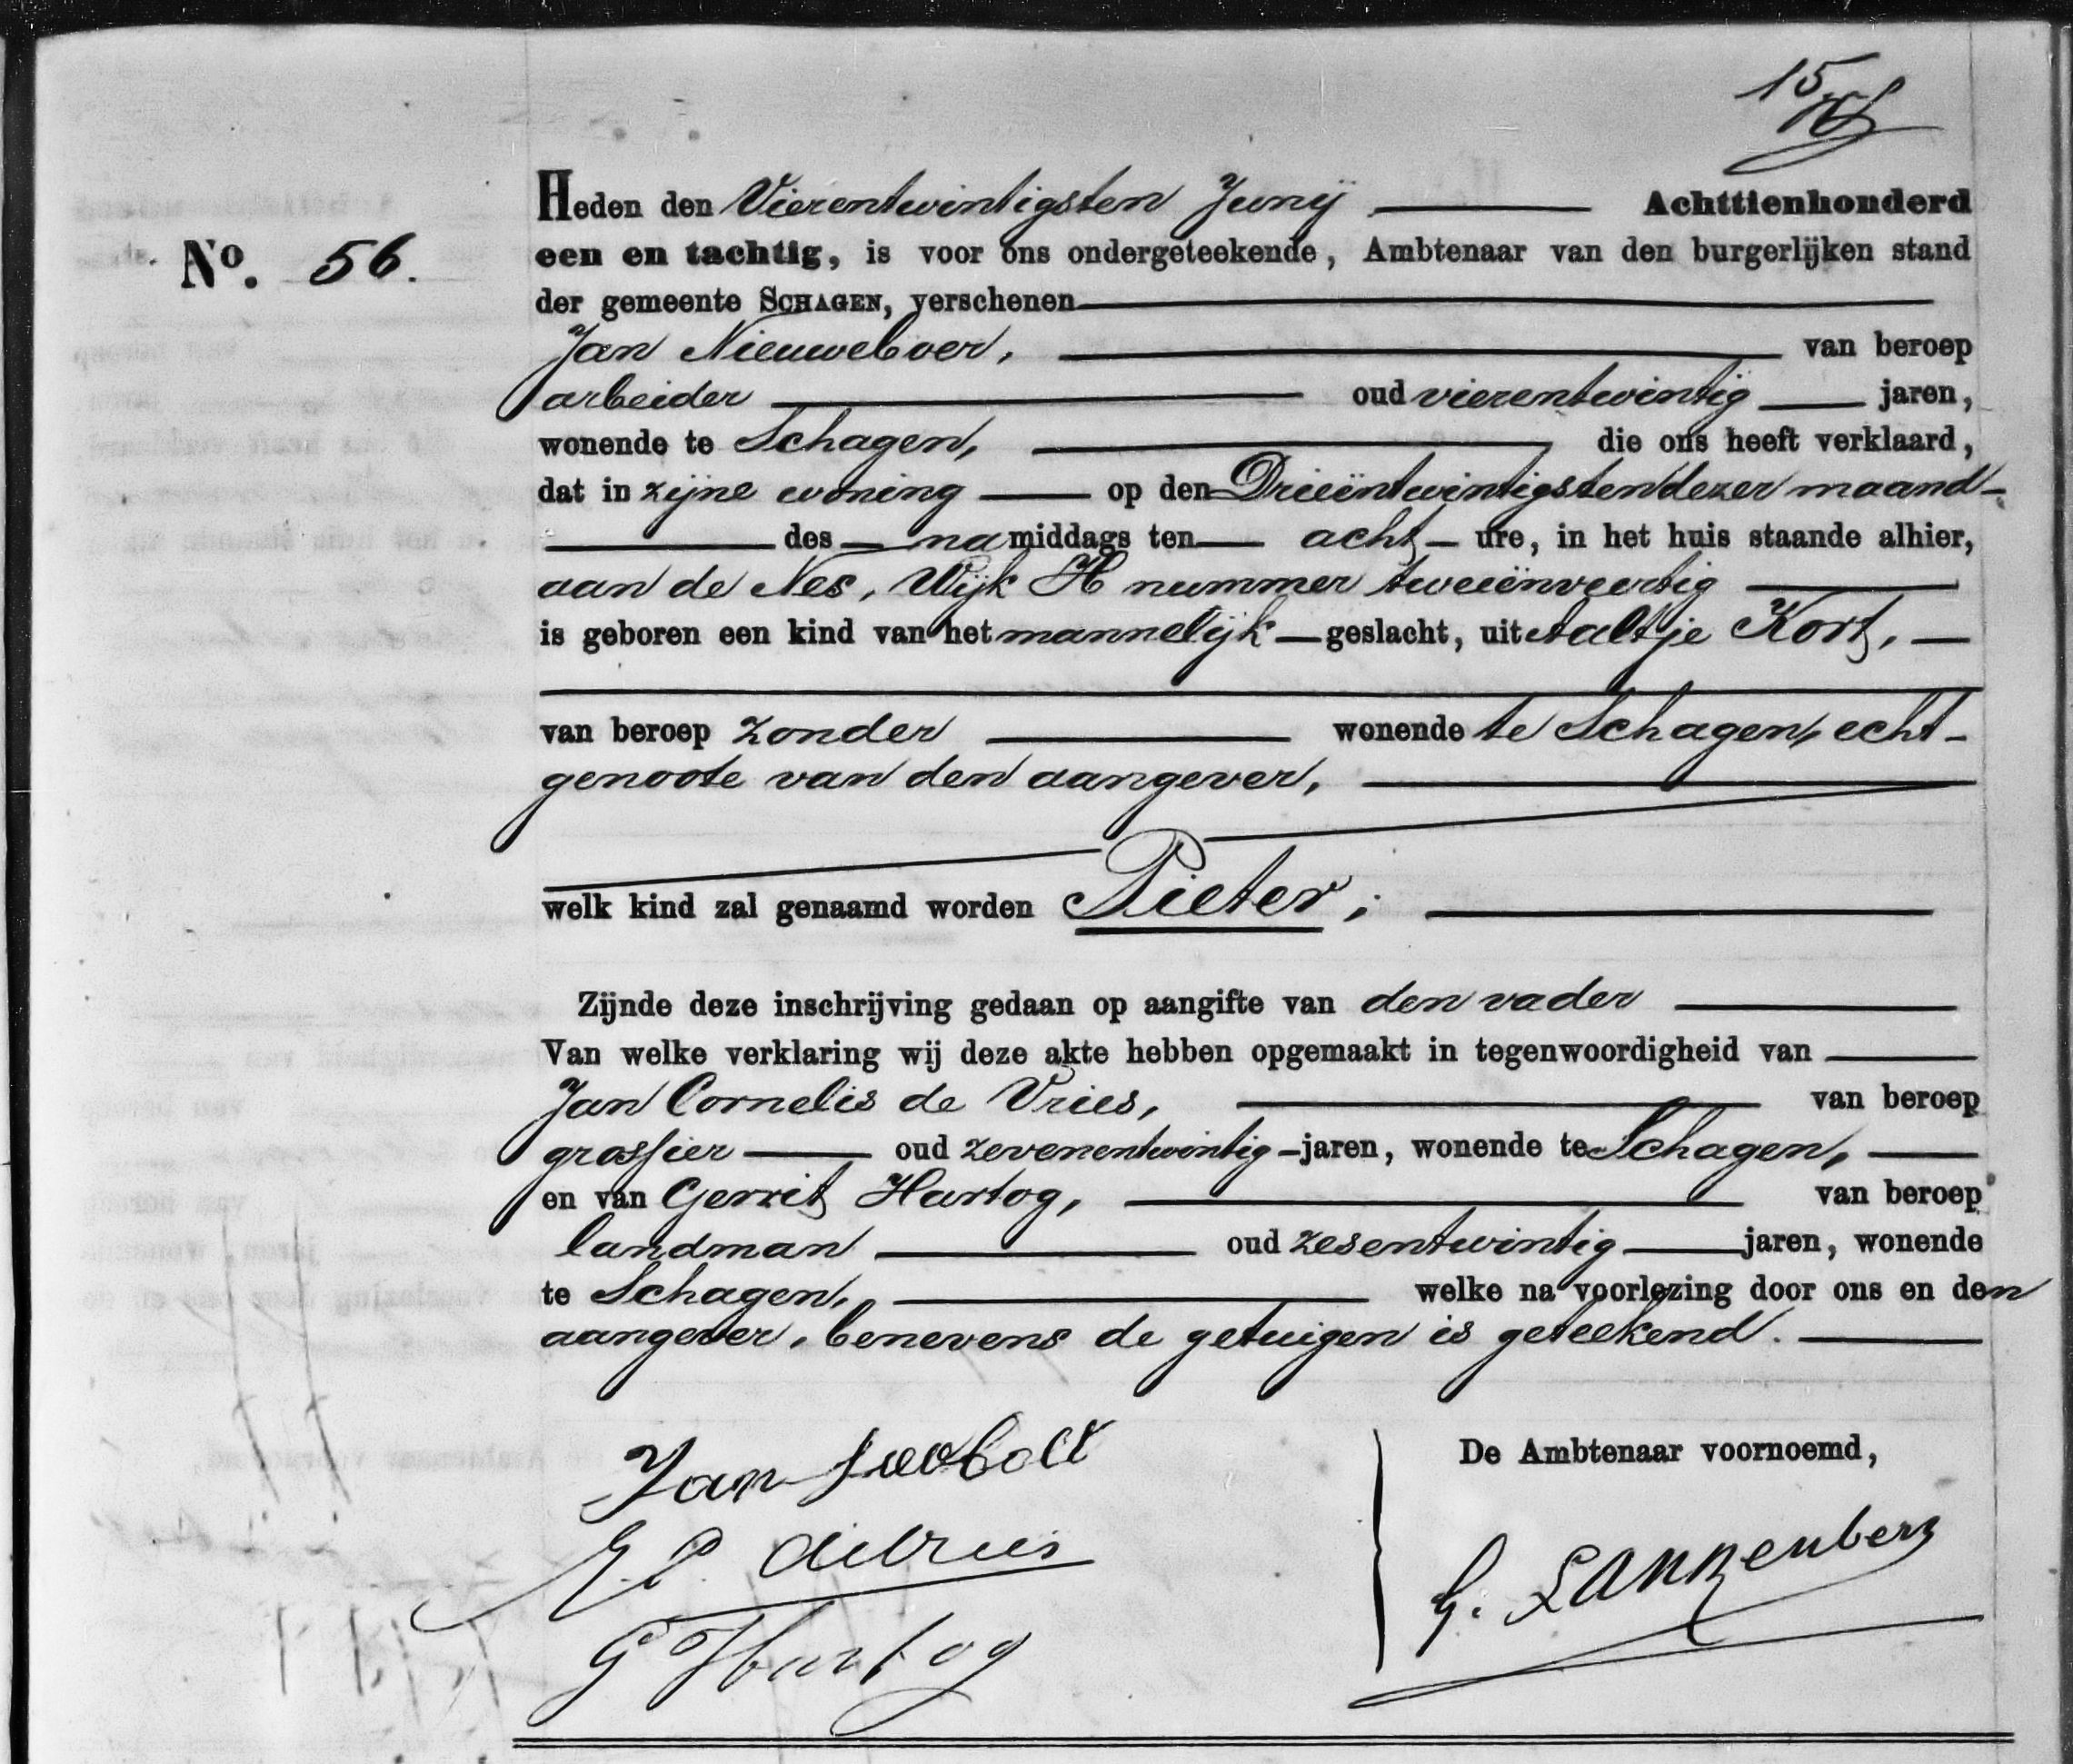 15
Heden den Vierentwintigsten Junij Achttienhonderd
No. 56.
een en tachtig, is voor ons ondergeteekende, Ambtenaar van den burgerlijken stand
der gemeente SCHAGEN, verschenen
Jan Nieuweboer, van beroep
arbeider oud vierentwintig jaren,
wonende te Schagen, die ons heeft verklaard,
dat in zijne woning op den Drieëntwintigsten dezer maand
des namiddags ten acht ure, in het huis staande alhier,
aan de Nes, Wijk H nummer tweeënveertig
is geboren een kind van het mannelijk geslacht, uit Aaltje Kort,
van beroep zonder wonende te Schagen, echt-
genoote van den aangever,
welk kind zal genaamd worden Pieter;
Zijnde deze inschrijving gedaan op aangifte van den vader
Van welke verklaring wij deze akte hebben opgemaakt in tegenwoordigheid van
Jan Cornelis de Vries, van beroep
grossier oud zevenentwintig jaren, wonende te Schagen,
en van Gerrit Hartog, van beroep
landman oud zesentwintig jaren, wonende
te Schagen, welke na voorlezing door ons en den
aangever, benevens de getuigen is geteekend.
Jan
De Ambtenaar voornoemd,
de Vries
G. Lankenberg
G Hartog